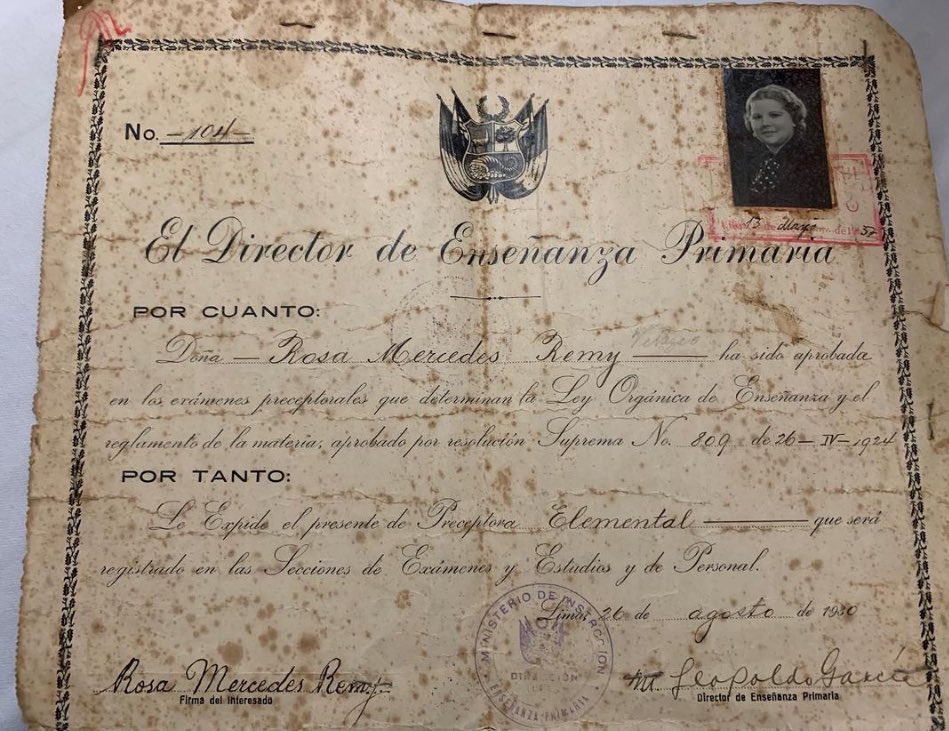 No. -104-
13 Mayo de 193
El Director de Enseñanza Primaria
POR CUANTO:
Doña — Rosa Mercedes Remy — ha sido aprobada
en los exámenes preceptorales que determinan la Ley Orgánica de Enseñanza y el
reglamento de la materia, aprobado por resolución Suprema No. 809 de 26-IV-1924
POR TANTO:
Le Expide el presente de Preceptora Elemental — que será
registrado en las Secciones de Exámenes y Estudios y de Personal.
Lima, 26 de agosto de 1930
MINISTERIO DE INSTRCCION
DIRECCION
ENSEÑANZA PRIMARIA
Rosa Mercedes Remy
Firma del Interesado
Leopoldo García
Director de Enseñanza Primaria